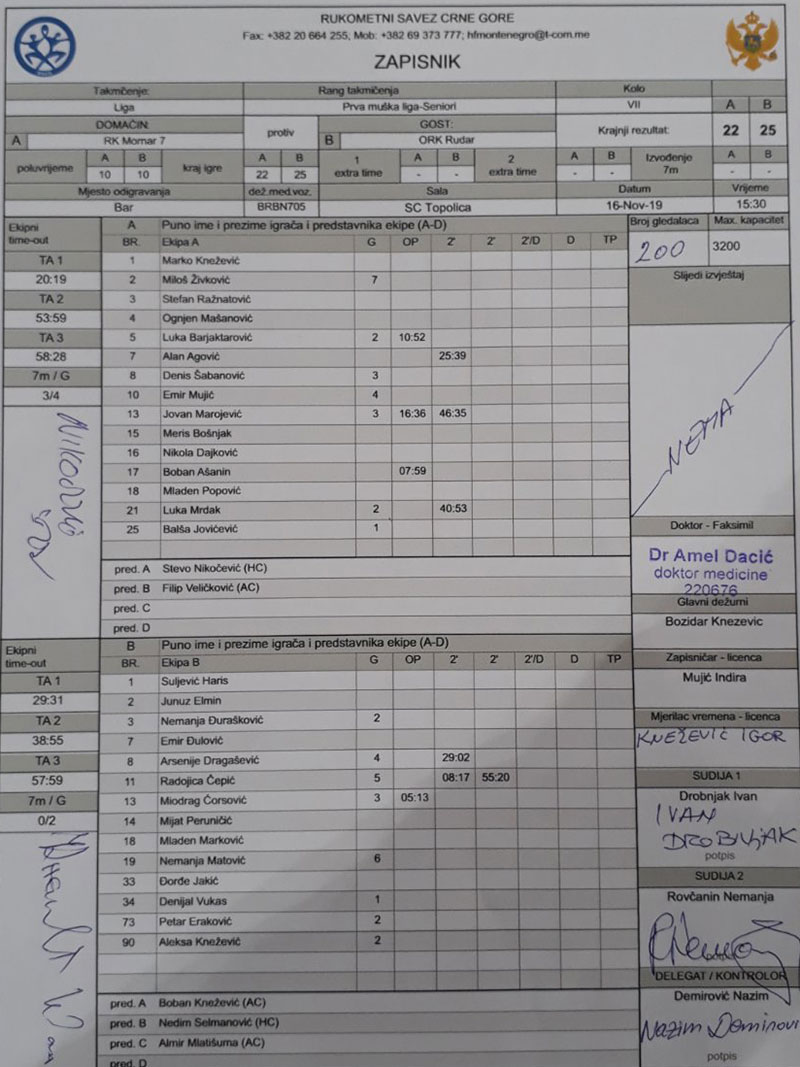 RUKOMETNI SAVEZ CRNE GORE
Fax: +382 20 664 255, Mob: +382 69 373 777; hfmontenegro@t-com.me
ZAPISNIK
Takmčenje: Rang takmičenja Kolo
Liga Prva muška liga-Seniori VII A B
DOMAĆIN: protiv GOST: Krajnji rezultat: 22 25
A RK Mornar 7 B ORK Rudar
poluvrijeme A B kraj igre A B 1 extra time A B 2 extra time A B Izvođenje 7m A B
10 10 22 25 - - - - - -
Mjesto odigravanja dež.med.voz. Sala Datum Vrijeme
Bar BRBN705 SC Topolica 16-Nov-19 15:30
Ekipni time-out A Puno ime i prezime igrača i predstavnika ekipe (A-D) Broj gledalaca Max. kapacitet
BR. Ekipa A G OP 2' 2' 2'/D D TP 200 3200
TA 1 1 Marko Knežević
20:19 2 Miloš Živković 7 Slijedi izvještaj
TA 2 3 Stefan Ražnatović
53:59 4 Ognjen Mašanović
TA 3 5 Luka Barjaktarović 2 10:52
58:28 7 Alan Agović 25:39
7m / G 8 Denis Šabanović 3
3/4 10 Emir Mujić 4
13 Jovan Marojević 3 16:36 46:35
NEMA
15 Meris Bošnjak
16 Nikola Dajković
17 Boban Ašanin 07:59
18 Mladen Popović
21 Luka Mrdak 2 40:53
25 Balša Jovićević 1 Doktor - Faksimil
Dr Amel Dacić
pred. A Stevo Nikočević (HC) doktor medicine
pred. B Filip Veličković (AC) 220676
pred. C Glavni dežurni
pred. D Bozidar Knezevic
Ekipni time-out B Puno ime i prezime igrača i predstavnika ekipe (A-D)
BR. Ekipa B G OP 2' 2' 2'/D D TP Zapisničar - licenca
TA 1 1 Suljević Haris Mujić Indira
29:31 2 Junuz Elmin
TA 2 3 Nemanja Đurašković 2 Mjerilac vremena - licenca
38:55 7 Emir Đulović KNEŽEVIĆ IGOR
TA 3 8 Arsenije Dragašević 4 29:02
57:59 11 Radojica Čepić 5 08:17 55:20 SUDIJA 1
7m / G 13 Miodrag Ćorsović 3 05:13 Drobnjak Ivan
0/2 14 Mijat Peruničić IVAN
18 Mladen Marković DROBNJAK
19 Nemanja Matović 6 potpis
33 Đorđe Jakić SUDIJA 2
34 Denijal Vukas 1 Rovčanin Nemanja
73 Petar Eraković 2
90 Aleksa Knežević 2
DELEGAT / KONTROLOR
pred. A Boban Knežević (AC) Demirović Nazim
pred. B Nedim Selmanović (HC)
pred. C Almir Mlatišuma (AC)
pred. D potpis